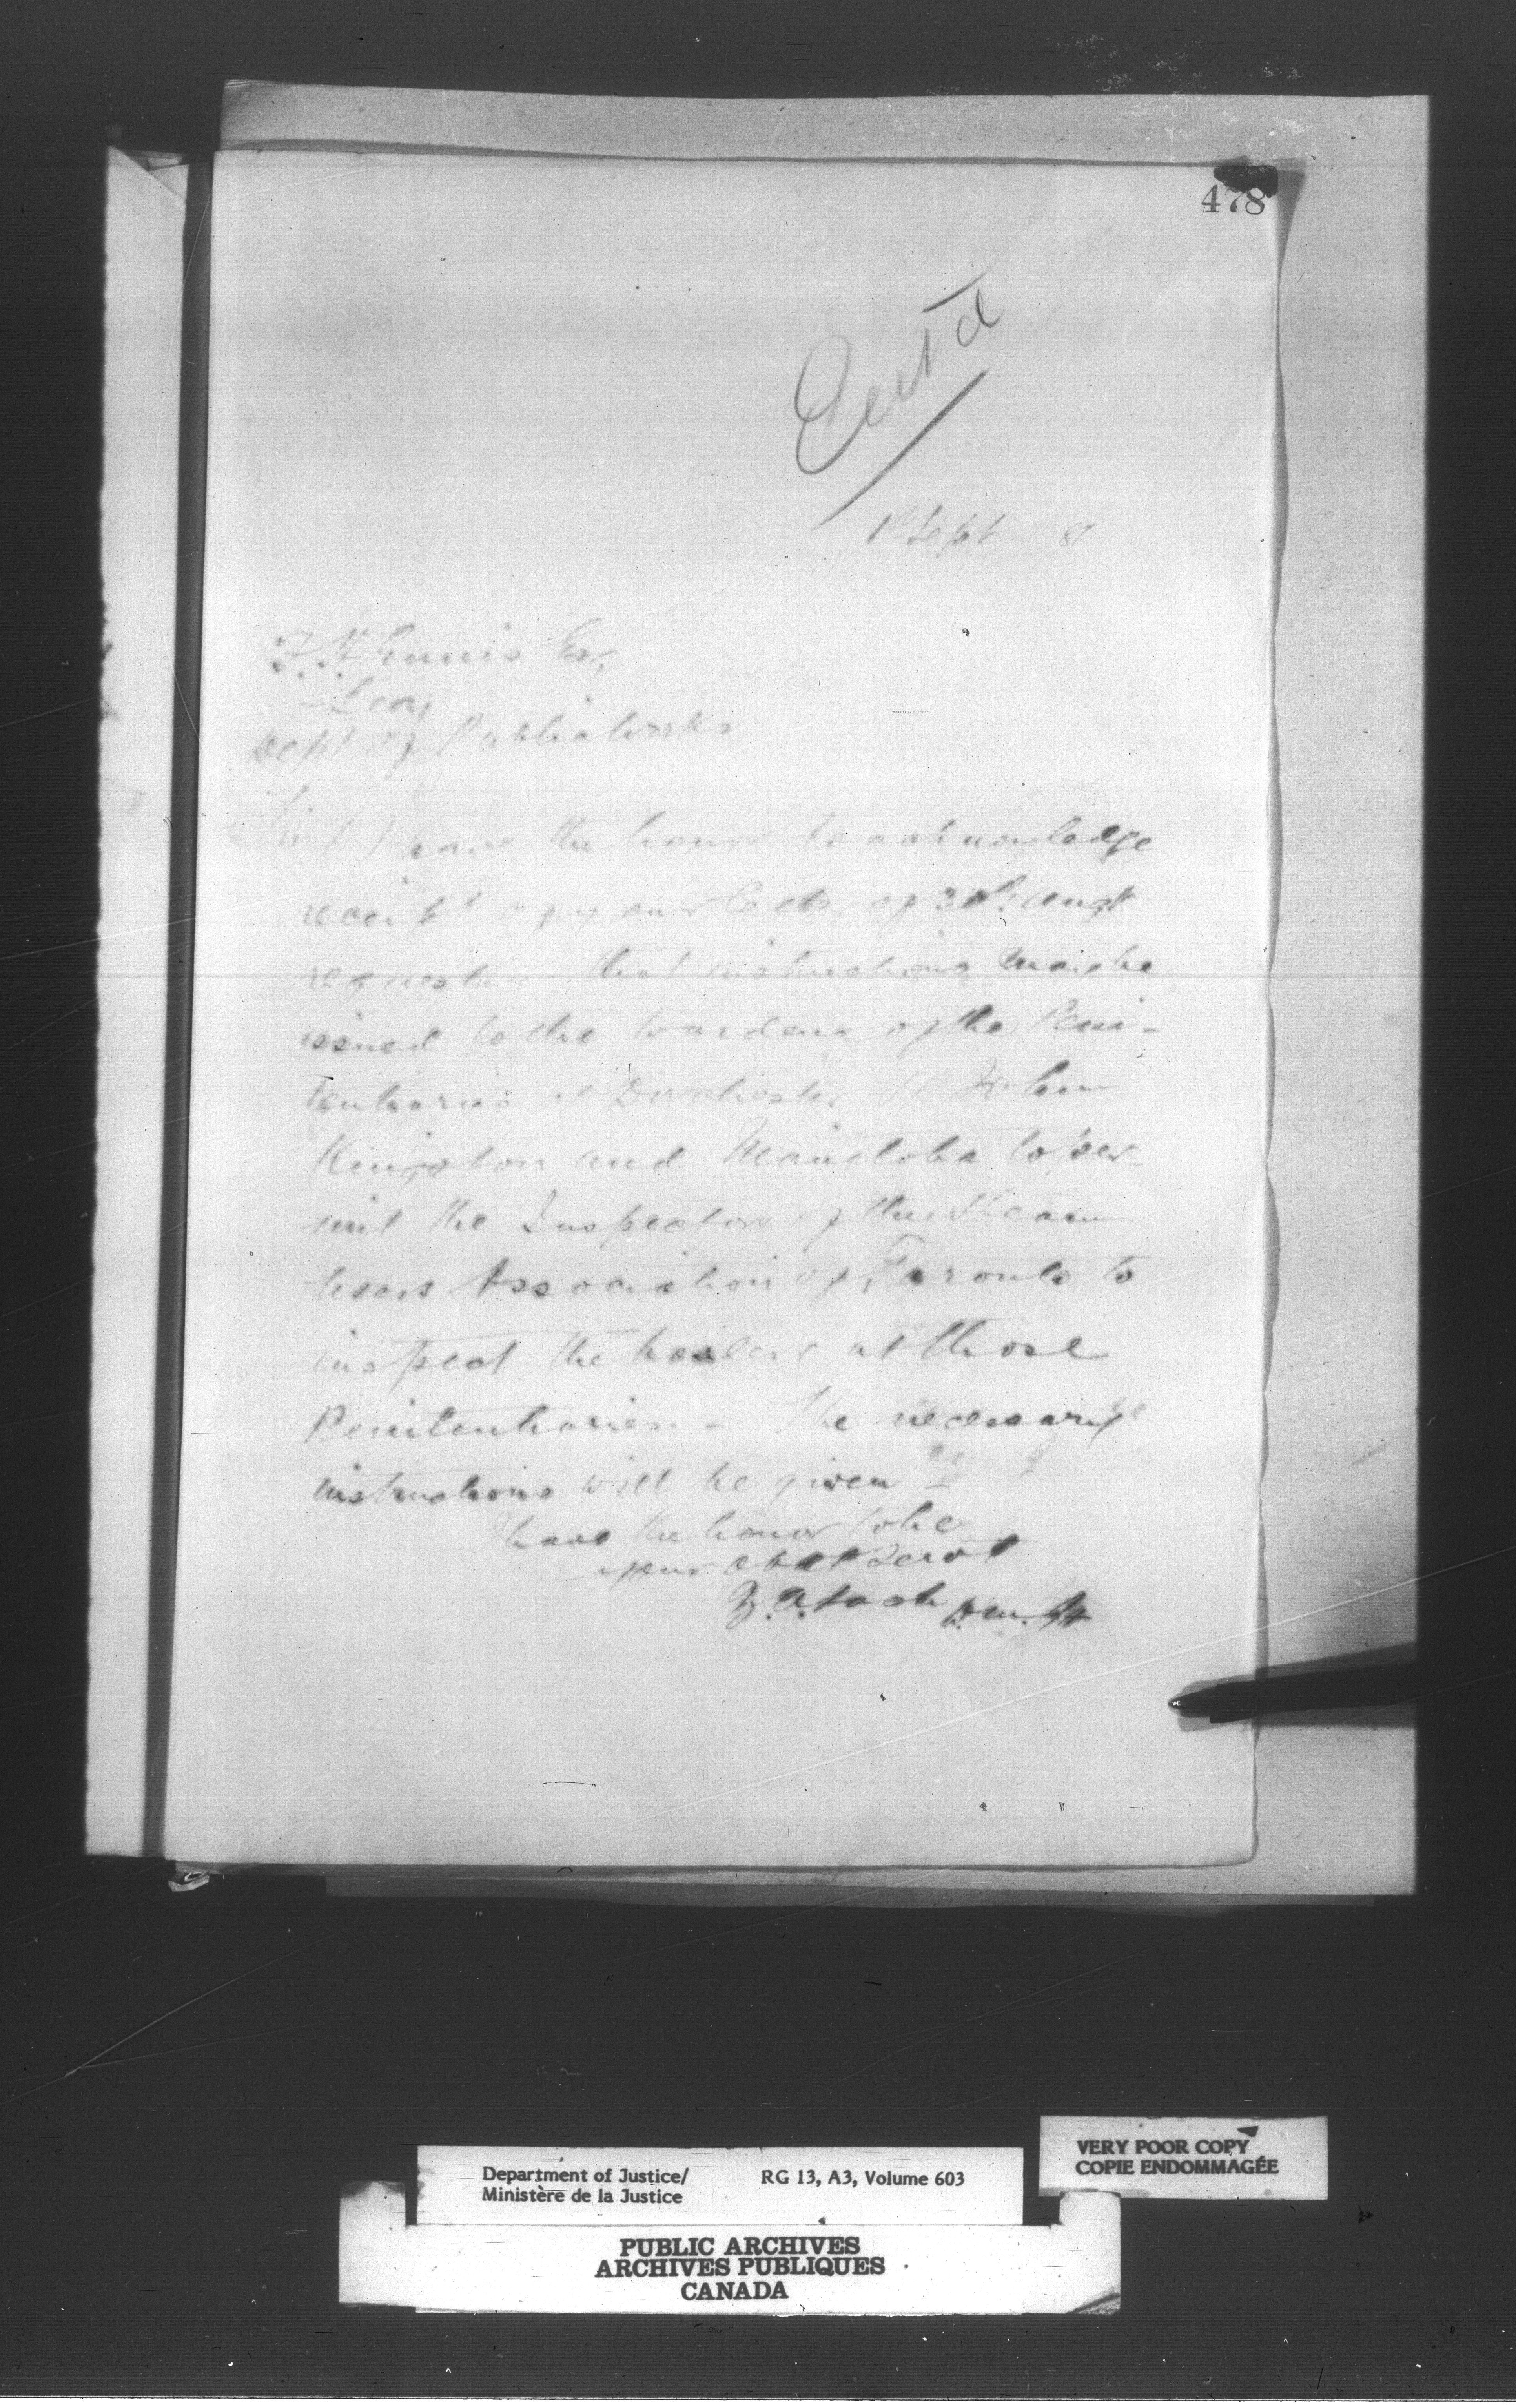 478
Ent'd
1st Sept 81
F. H. Ennis Esq
Secy
Dept of Public Works
Sir I have the honor to acknowledge
receipt of your letter of 30th augt
requesting that instructions may be
issued to the Wardens of the Peni-
tentiaries at Dorchester St John
Kingston and Manitoba to per-
mit the Inspectors of the Steam
Users Association of Toronto to
inspect the boilers at those
Penitentiaries - The necessary
instructions will be given -
I have the honor to be
your obdt Servt
Z. A. Lash
Department of Justice/ RG 13, A3, Volume 603
Ministère de la Justice
VERY POOR COPY
COPIE ENDOMMAGÉE
PUBLIC ARCHIVES
ARCHIVES PUBLIQUES
CANADA